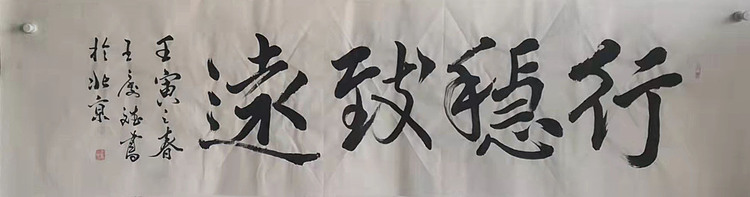 行穩致遠
壬寅之春
王慶書
於北京